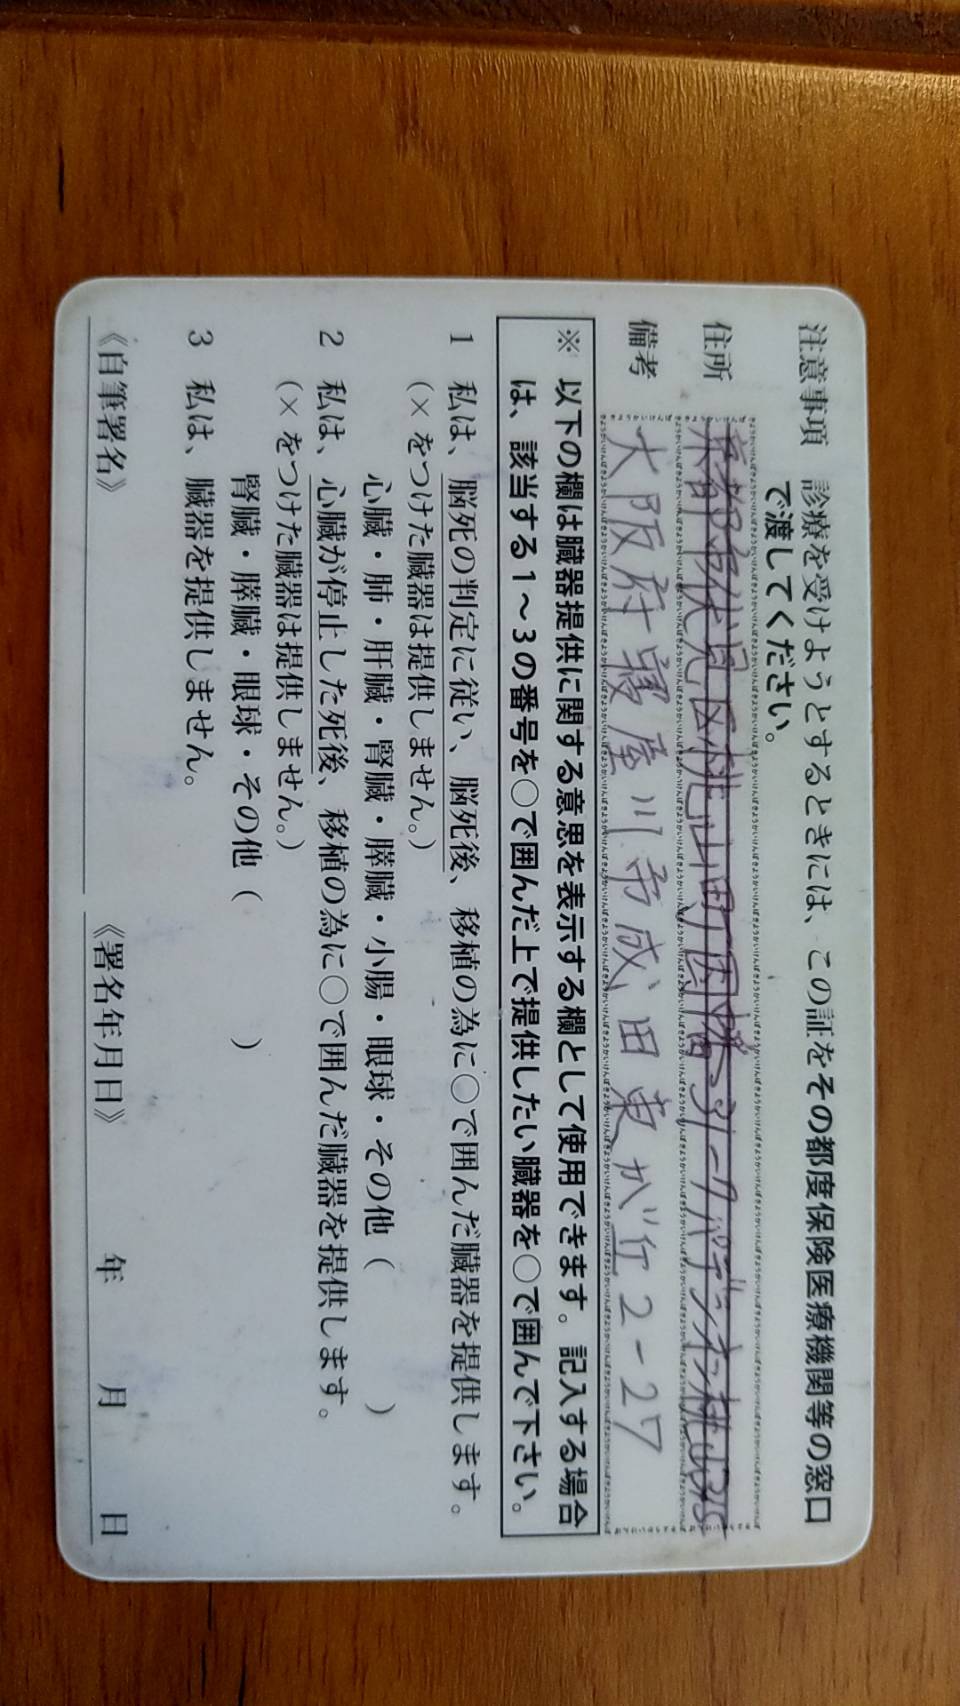 注意事項 診療を受けようとするときには、この証をその都度保険医療機関等の窓口
で渡してください。
住所 京都市伏見区桃山町因幡31-7パデシオン桃山315
備考 大阪府寝屋川市成田東が丘2-27
※ 以下の欄は臓器提供に関する意思を表示する欄として使用できます。記入する場合
は、該当する1～3の番号を○で囲んだ上で提供したい臓器を○で囲んで下さい。
1 私は、脳死の判定に従い、脳死後、移植の為に○で囲んだ臓器を提供します。
(×をつけた臓器は提供しません。)
心臓・肺・肝臓・腎臓・膵臓・小腸・眼球・その他( )
2 私は、心臓が停止した死後、移植の為に○で囲んだ臓器を提供します。
(×をつけた臓器は提供しません。)
腎臓・膵臓・眼球・その他( )
3 私は、臓器を提供しません。
《自筆署名》 《署名年月日》 年 月 日